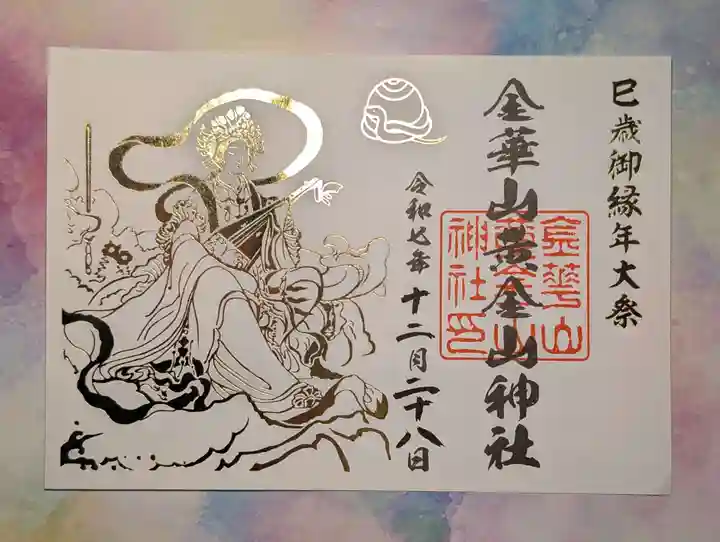 巳歳御縁年大祭
金華山黄金山神社
令和七年
十二月二十八日
金華山
黄金山
神社印